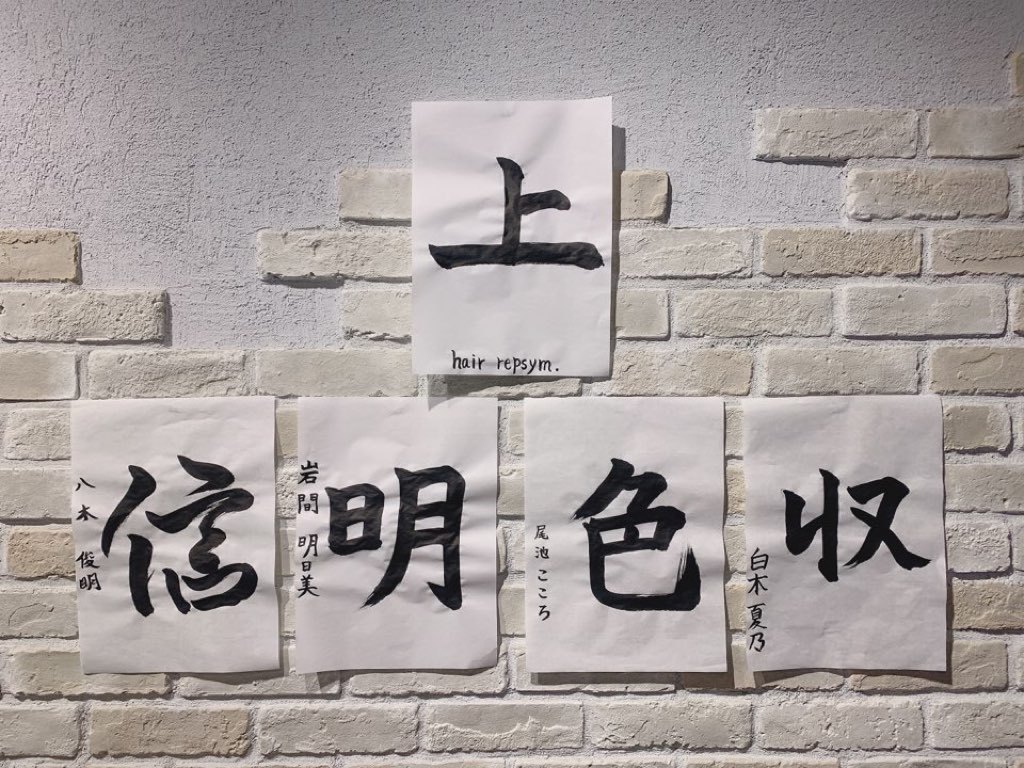 上
hair repsym.
信
八木 俊明
明
岩間 明日美
色
尾池 こころ
収
白木 夏乃